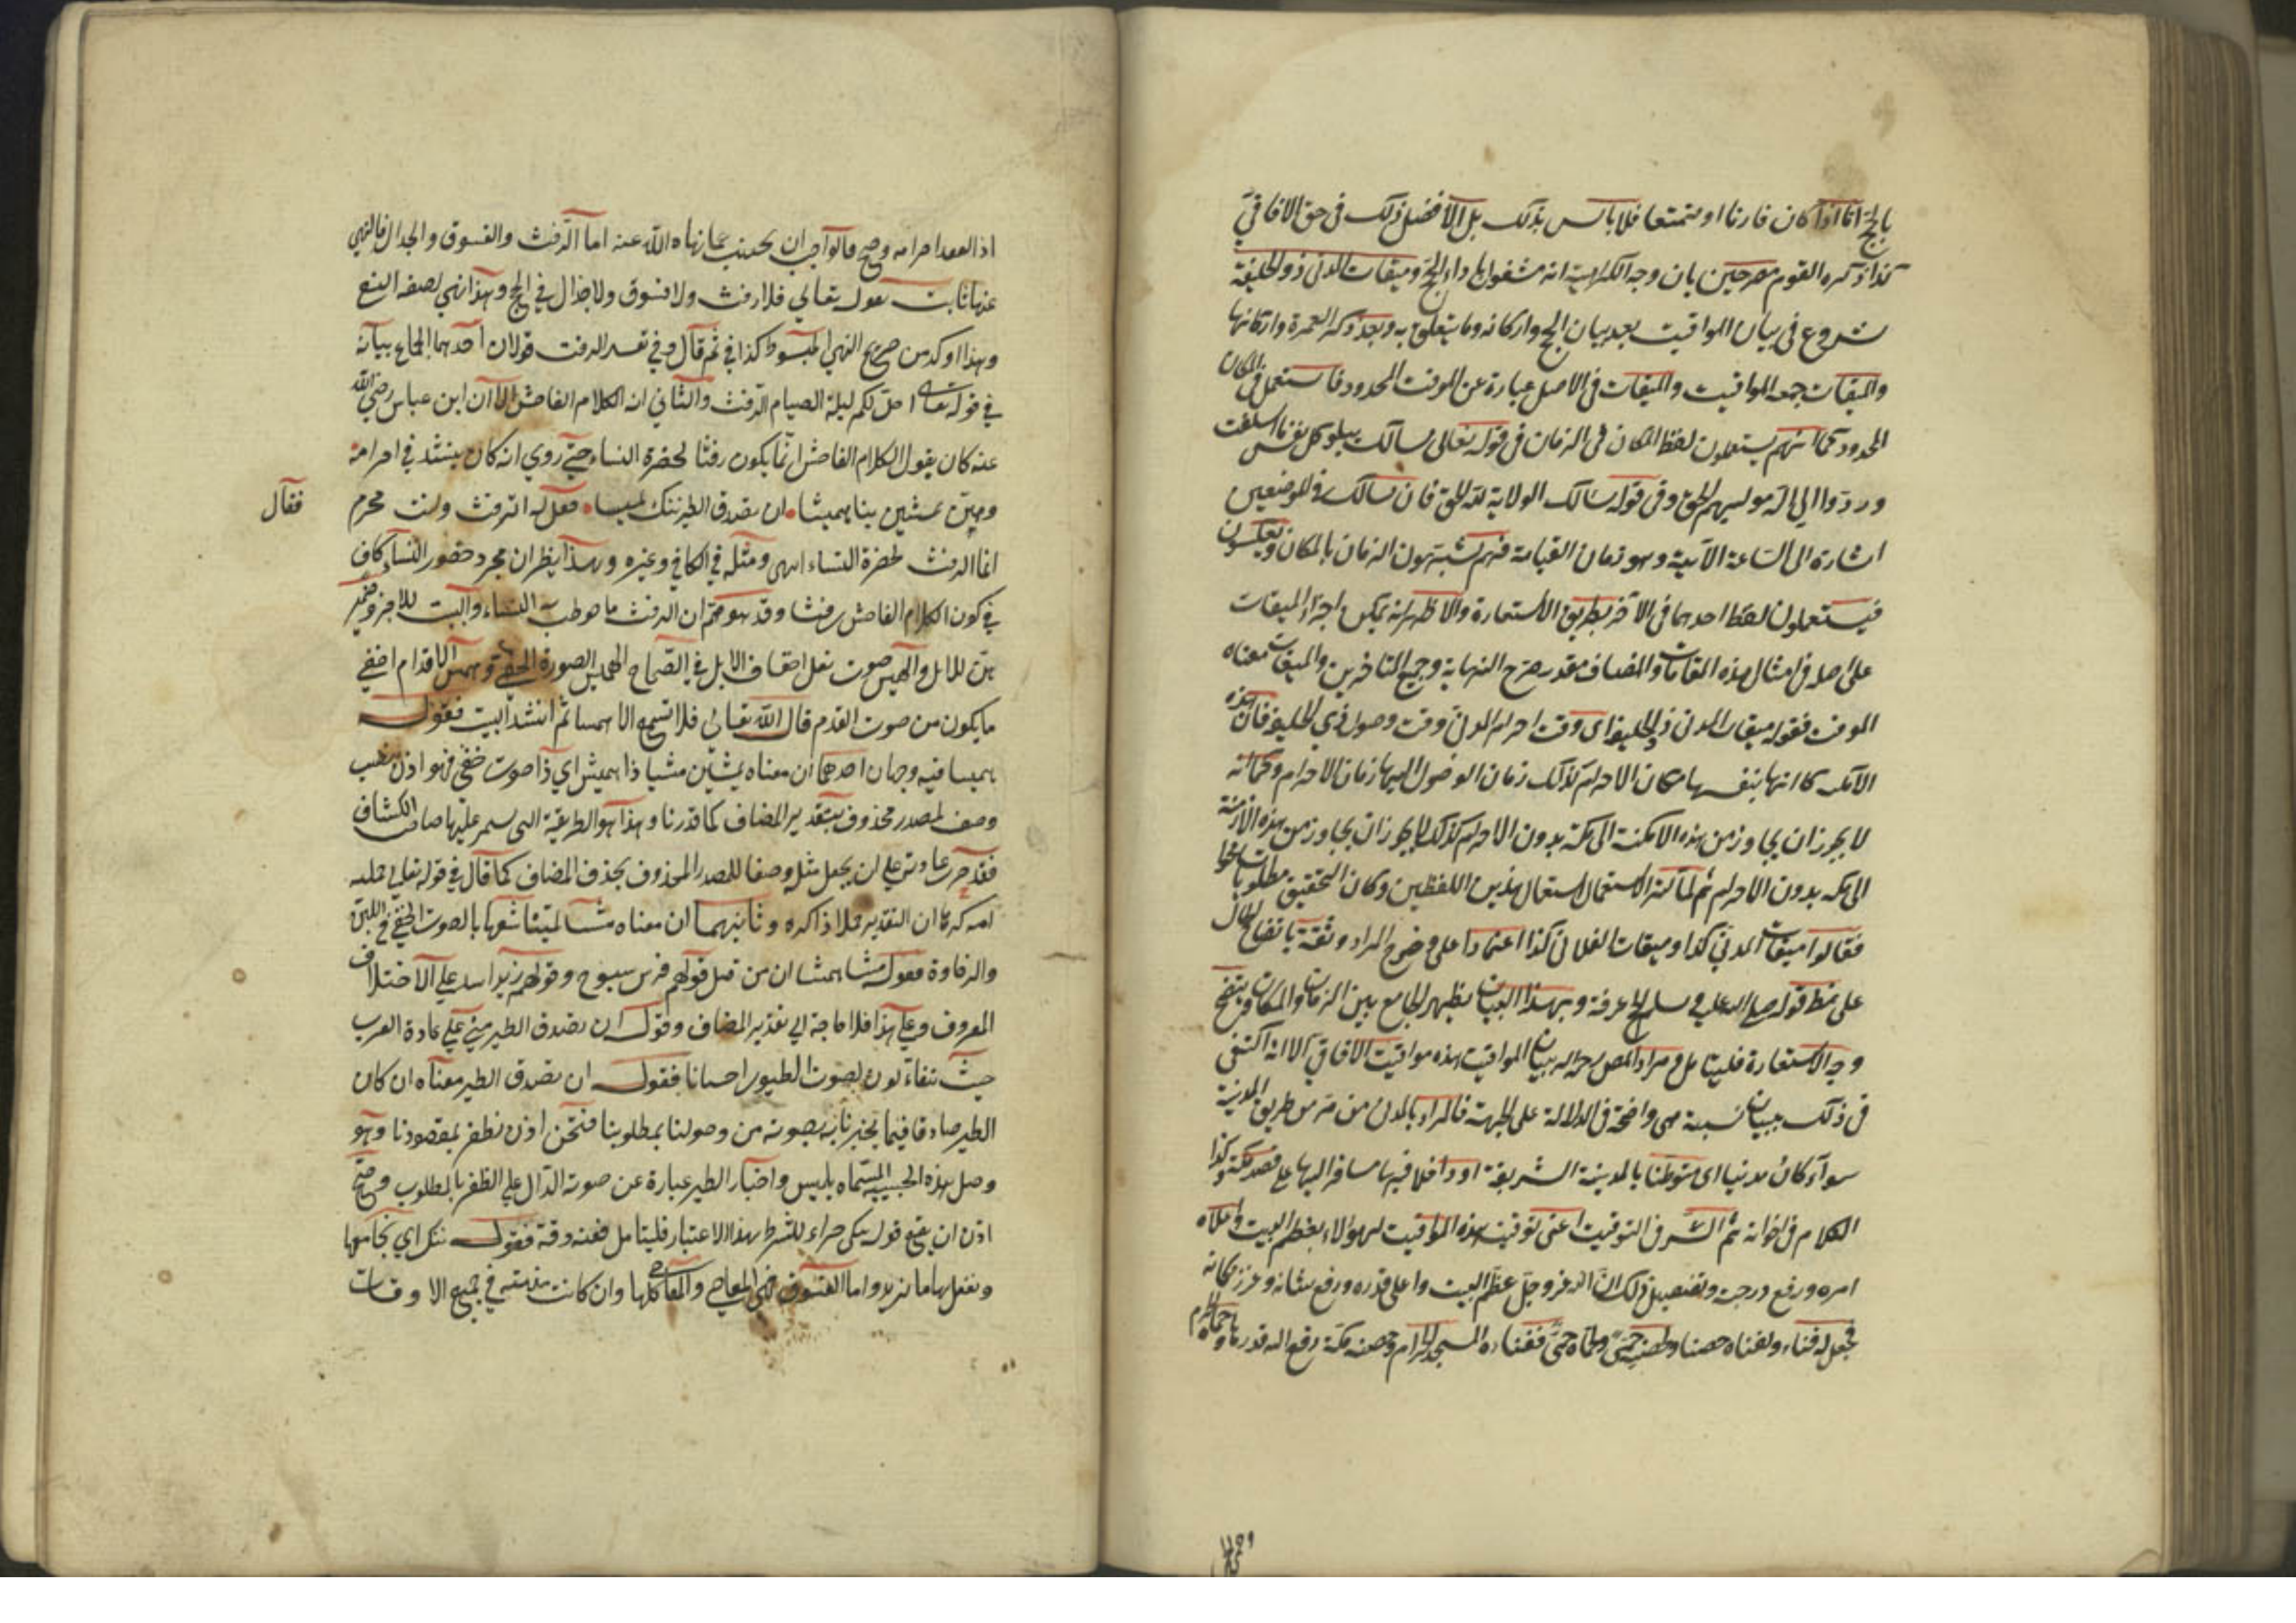 بالحج اما اذا كان قارنا او متمتعا فلا باس بذلك بل الافضل ذلك في حق الافاقي
كذا ذكره القوم مصرحين بان وجه الكراهية انه مشغول باداء الحج وميقات المدني ذو الحليفة
شروع في بيان المواقيت بعد بيان الحج واركانه وما يتعلق به وبعد ذكر العمرة واركانها
والميقات جمعه المواقيت والميقات في الاصل عبارة عن الوقت المحدود فاستعمل في المكان
المحدود كما انهم يستعملون لفظ المكان في الزمان في قوله تعالى هنالك تبلو كل نفس ما اسلفت
وردوا الى الله مولهم الحق وفي قوله هنالك الولاية لله الحق فان هنالك في الموضعين
اشارة الى الساعة الآتية وهو زمان القيامة فهم يشبهون الزمان بالمكان ويعكسون
فيستعملون لفظ احدهما في الآخر بطريق الاستعارة والاظهر انه يمكن اجراء الميقات
على اصله في امثال هذه المقامات والمضاف مقدر صرح النهاية وجميع المتاخرين والميقات معناه
الموقت فقوله ميقات المدني ذو الحليفة اى وقت احرام المدني وقت وصول ذي الحليفة فان هذه
الامكنة كما انها بنفسها مكان الاحرام كذلك زمان الوصول اليها زمان الاحرام وكما انه
لا يجوز ان يجاوز من هذه الامكنة الى مكة بدون الاحرام كذلك لا يجوز ان يجاوز من هذه الازمنة
الى مكة بدون الاحرام ثم لما كثر الاستعمال استعمال هذين اللفظين وكان التحقيق مطلوبا
فقالوا ميقات المدني كذا وميقات الفلاني كذا اعتمادا على وضوح المراد وثقة باتضاح الحال
على نمط قوله صلى الله عليه وسلم الحج عرفة وبهذا البيان يظهر الجامع بين الزمان والمكان ويتضح
وجه الاستعارة فليتامل في مراد المص رحمه الله ببيان المواقيت هذه مواقيت الافاقي الا انه اكتفى
في ذلك ببيان نسبة هي واضحة في الدلالة على الجهة فالمراد بالمدني من مر من طريق المدينة
سواء كان مدنيا اى متوطنا بالمدينة الشريفة او داخلا فيها مسافرا اليها على قصد مكة وكذا
الكلام في اخواته ثم السر في التوقيت اعنى توقيت هذه المواقيت لهؤلاء تعظيم البيت واعلاء
امره ورفع درجته وتفصيل ذلك ان الله عز وجل عظم البيت واعلى قدره ورفع شانه وعزز مكانه
فجعل له فناء ولفناه حصنا ولحصنه حمى ولحماه حمى ففناءه المسجد الحرام وحصنه مكة رفع الله قدرها وحماه الحرم
اذا انعقد احرامه وصح قالوا يجب ان يجتنب عما نهاه الله عنه اما الرفث والفسوق والجدال فالنهي
عنها ثابت بقوله تعالي فلا رفث ولا فسوق ولا جدال في الحج وهذا نهي بصفة النفي
وهذا اوكد من صريح النهي المبسوط كذا في ثم قال وفي تفسير الرفث قولان احدهما الجماع بيانه
في قوله تعالى احل لكم ليلة الصيام الرفث والثاني انه الكلام الفاحش الا ان ابن عباس رضي الله
عنه كان يقول الكلام الفاحش انما يكون رفثا لحضرة النساء حتي روي انه كان ينشد في احرامه
وهن يمشين بنا هميسا ان يصدق الطير ننك لميسا فقيل له اترفث وانت محرم
فقال
انما الرفث لحضرة النساء انتهى ومثله في الكافي وغيره وبهذا يظهر ان مجرد حضور النساء كاف
في كون الكلام الفاحش رفثا وقد هو ثم ان الرفث ما خوطب به النساء والبيت للراجز وضمير
هن للابل والهميس صوت نقل اخفاف الابل في الصحاح الهمس الصوت الخفي وهمس الاقدام اخفي
ما يكون من صوت القدم قال الله تعالى فلا تسمع الا همسا ثم انشد البيت فقوله
هميسا فيه وجهان احدهما ان معناه يمشين مشيا ذا هميس اي ذا صوت خفي فهو اذن نصب
وصف لمصدر محذوف بتقدير المضاف كما قدرنا وهذا هو الطريقة التي يستمر عليها صاحب الكشاف
فقد جرت عادته علي ان يجعل مثله وصفا للمصدر المحذوف بحذف المضاف كما قال في قوله تعالي حملته
امه كرها ان التقدير حملا ذا كره وثانيهما ان معناه مشيا لينا شبها بالصوت الخفي في اللين
والرخاوة فقوله مشيا هميسا اذن من قبيل قولهم فرس سبوح وقولهم زيد اسد علي الاختلاف
المعروف وعلي هذا فلا حاجة الي تقدير المضاف وقوله ان يصدق الطير مبني علي عادة العرب
حيث يتفاءلون بصوت الطيور احيانا فقوله ان يصدق الطير معناه ان كان
الطير صادقا فيما يخبرنا به بصوته من وصولنا بمطلوبنا فنحن اذن نظفر بمقصودنا وهو
وصل هذه الحبيبة المسماة بلميس واخبار الطير عبارة عن صوته الدال علي الظفر بالمطلوب وصح
اذن ان يقع قوله ننك جزاء للشرط بهذا الاعتبار فليتامل ففيه دقة فقوله ننك اي نجامعها
ونفعل بها ما نريد واما الفسوق فهي المعاصي والمعاصي كلها وان كانت منهية في جميع الاوقات